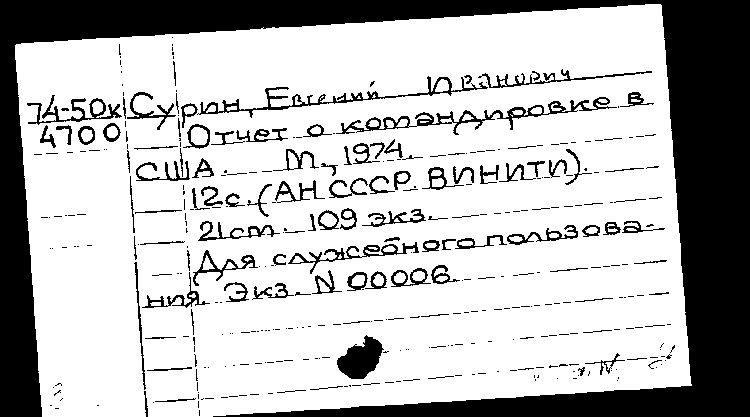 74-50к Сурин, Евгений Иванович
4700 Отчет о командировке в
США. М., 1974.
12с. (АН СССР. ВИНИТИ).
21cm. 109 экз.
Для служебного пользова-
ния. Экз. N 00006.